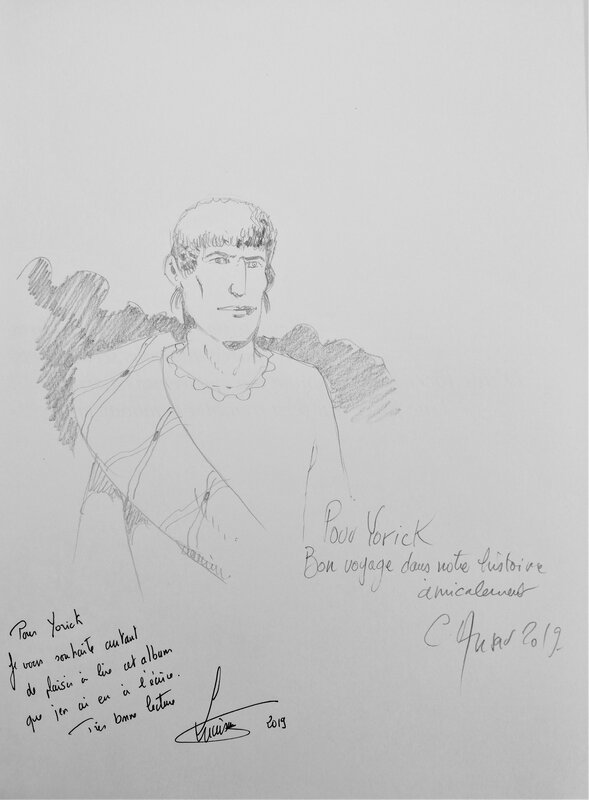 Pour Yorick
Bon voyage dans notre histoire
amicalement
2019
Pour Yorick
Je vous souhaite autant
de plaisir à lire cet album
que j'en ai eu à l'écrire.
Très bonne lecture
2019